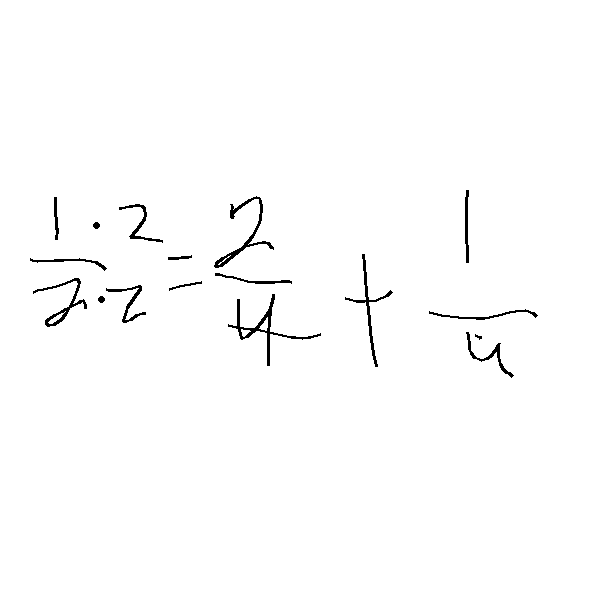 1·2/2·2 = 2/4 + 1/4